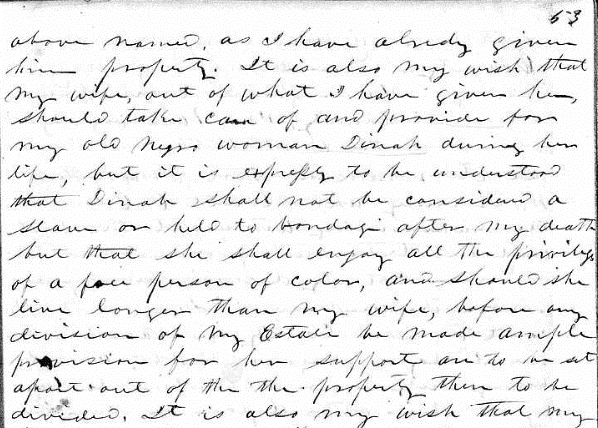 53
above named, as I have alredy given
him property. It is also my wish that
my wife, out of what I have given her,
should take care of and provide for
my old negro woman Dinah during her
life, but it is expressly to be understood
that Dinah shall not be considered a
slave or held to bondage after my death
but that she shall enjoy all the privileges
of a free person of color, and should she
live longer than my wife, before any
division of my Estate be made ample
provision for her support are to be set
apart out of the the property then to be
divided. It is also my wish that my